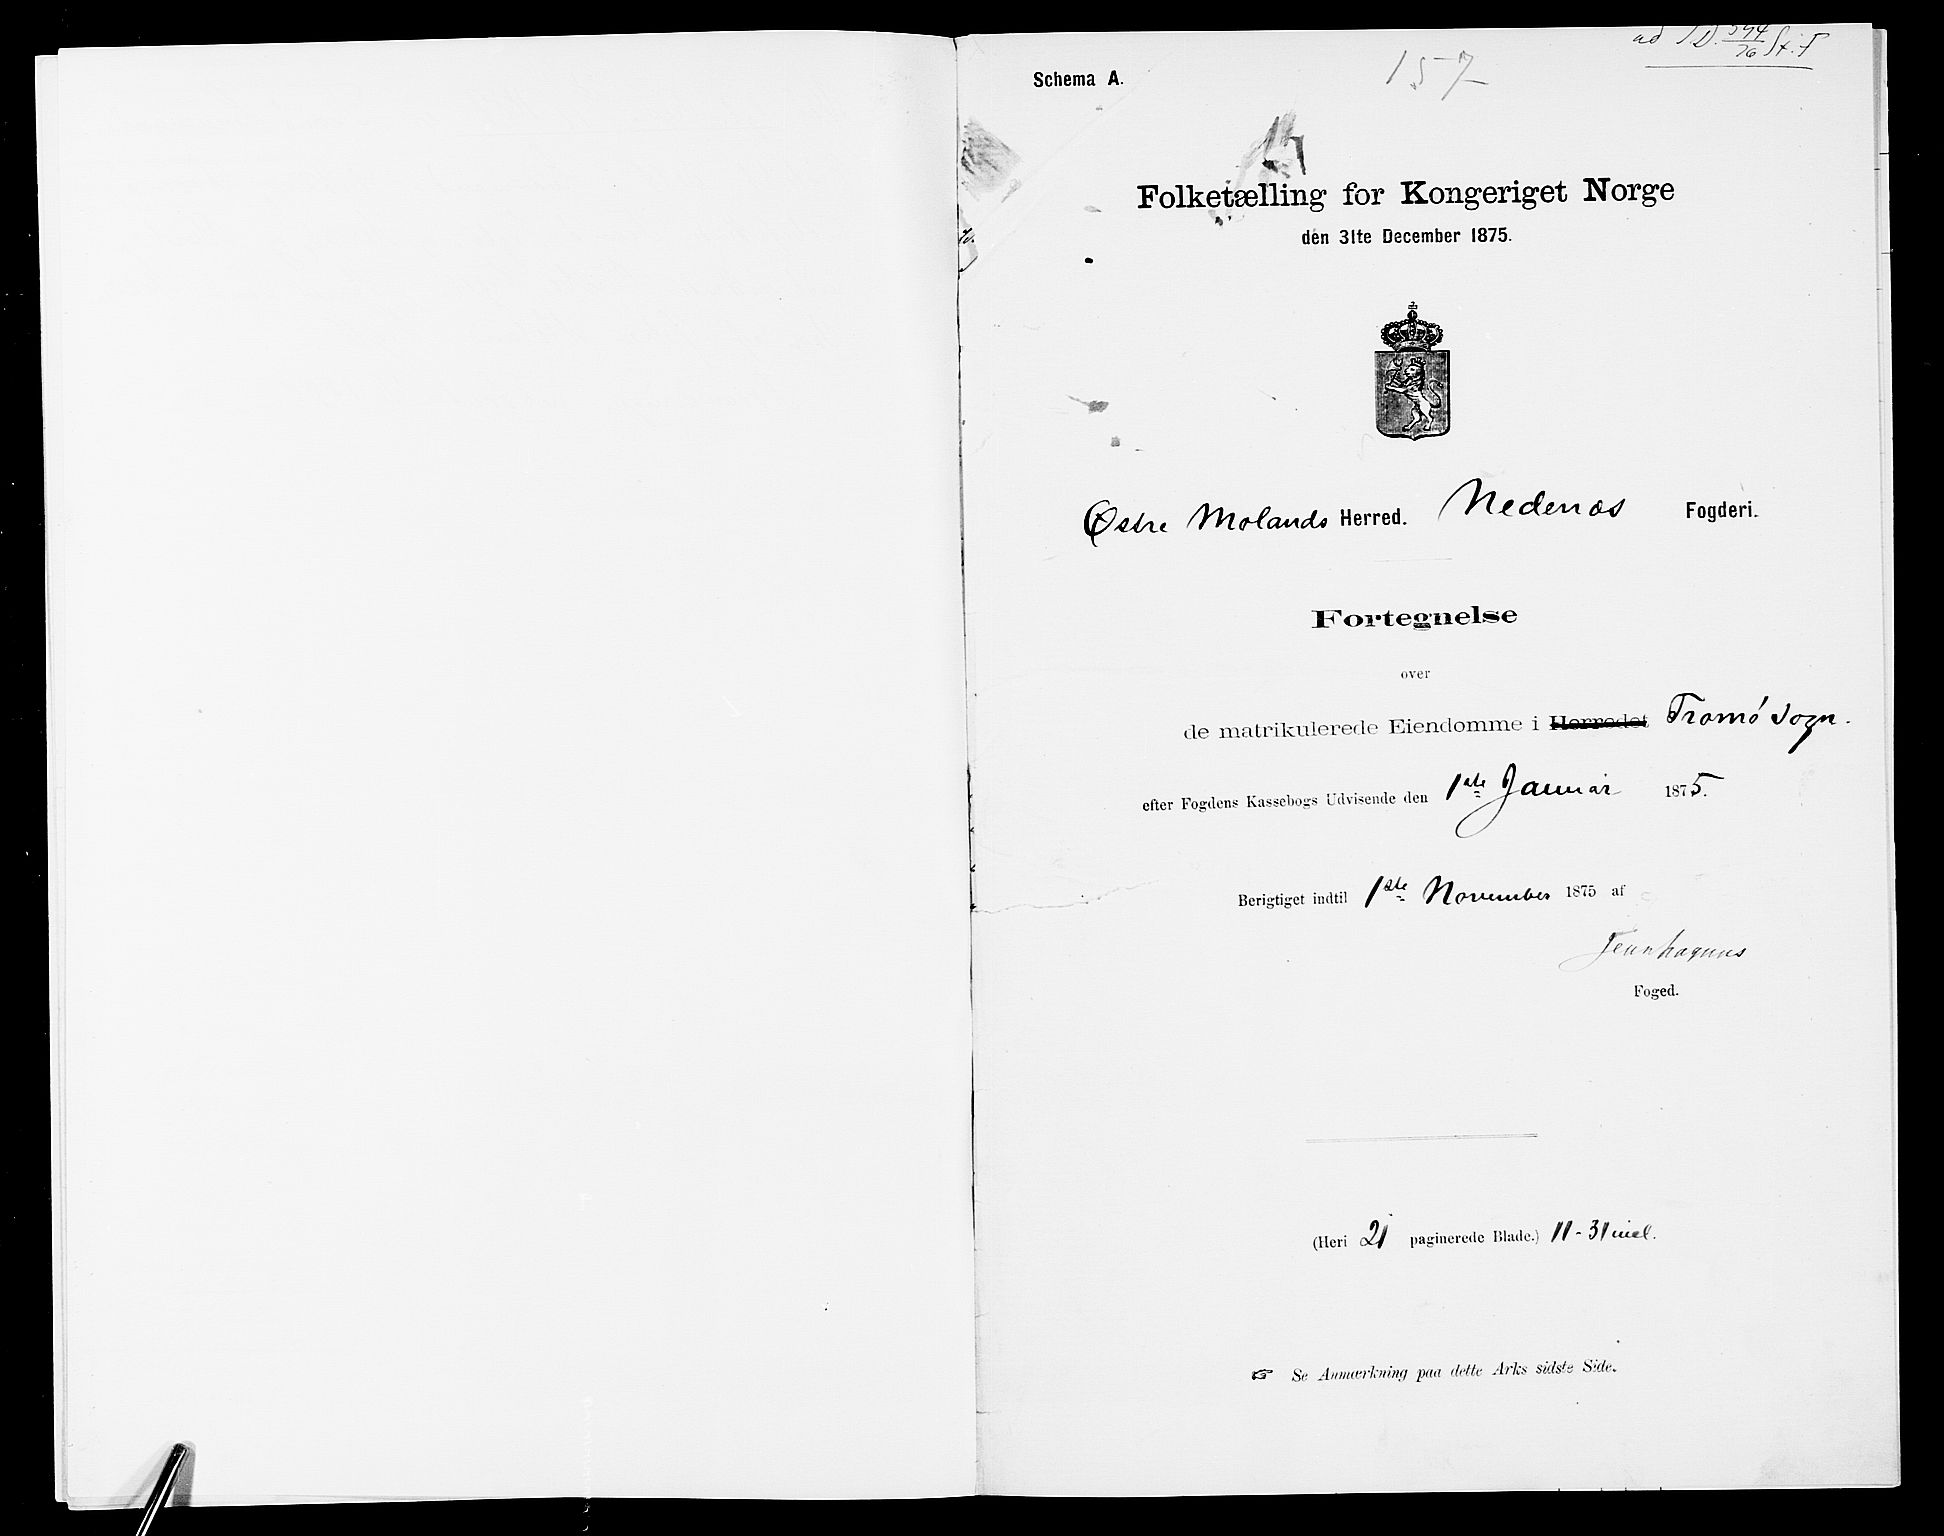 ad J.D. 594/76 St. F
Schema A.
157
Folketælling for Kongeriget Norge
den 31te December 1875.
Østre Molands Herred. Nedenæs Fogderi.
Fortegnelse
over
de matrikulerede Eiendomme i Herredet Tromø Sogn.
efter Fogdens Kassebogs Udvisende den 1ste Januar 1875.
Berigtiget indtil 1ste November 1875 af
Foged.
(Heri 21 paginerede Blade.) 11-31 incl.
☞ Se Anmærkning paa dette Arks sidste Side.